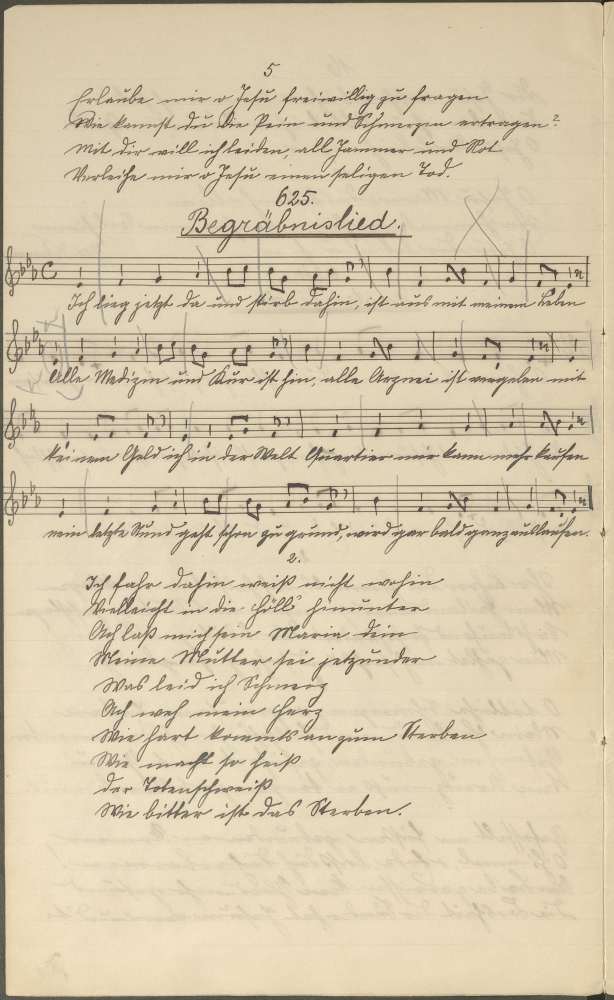 5
Erlaube mir o Jesu freiwillig zu fragen
Wie kannst du die Pein und Schmerzen ertragen?
Mit dir will ich leiden, all Jammer und Not
Verleihe mir o Jesu einen seligen Tod.
625.
Begräbnislied.
Ich lieg jetzt da und stirb dahin, ist aus mit meinem Leben
Alle Medizin und Kur ist hin, alle Arznei ist vergeben mit
keinem Geld ich in der Welt Quartier mir kann mehr kaufen
mein letzte Stund geht schon zu grund, wird gar bald ganz auslaufen.
2.
Ich fahr dahin weiß nicht wohin
Vielleicht in die Höll hinunter
Ach laß mich sein Maria dein
Meine Mutter sei jetzunder
Was leid ich Schmerz
Ach weh mein Herz
Wie hart kommts an zum Sterben
Wie macht so heiß
der Totenschweiß
Wie bitter ist das Sterben.